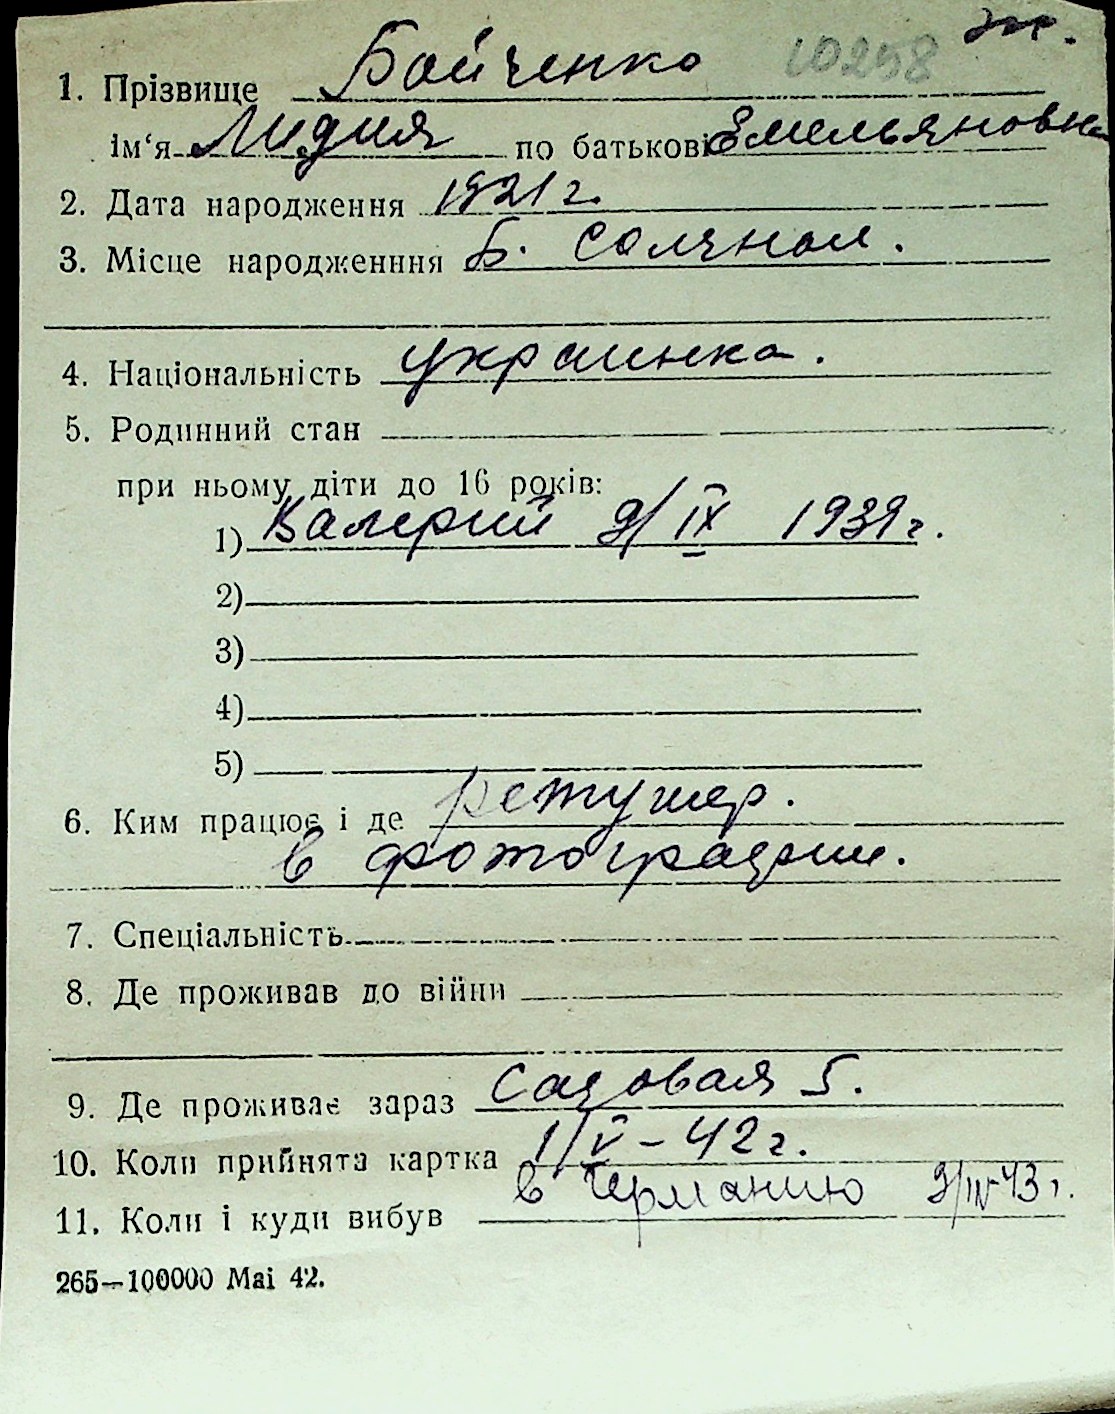 10258 ж.
1. Прізвище Бойченко
ім‘я Лидия по батькові Емельяновна
2. Дата народження 1921 г.
3. Місце народженння Б.
4. Національність украинка.
5. Родинний стан
при ньому діти до 16 років:
1) Валерий 9/IX 1939 г.
2)
3)
4)
5)
6. Ким працює і де ретушер.
в фотографии.
7. Спеціальність
8. Де проживав до війни
9. Де проживає зараз Садовая 5.
10. Коли прийнята картка 1/V – 42 г.
11. Коли і куди вибув в Германию 9/IV 43 г.
265—100000 Mai 42.